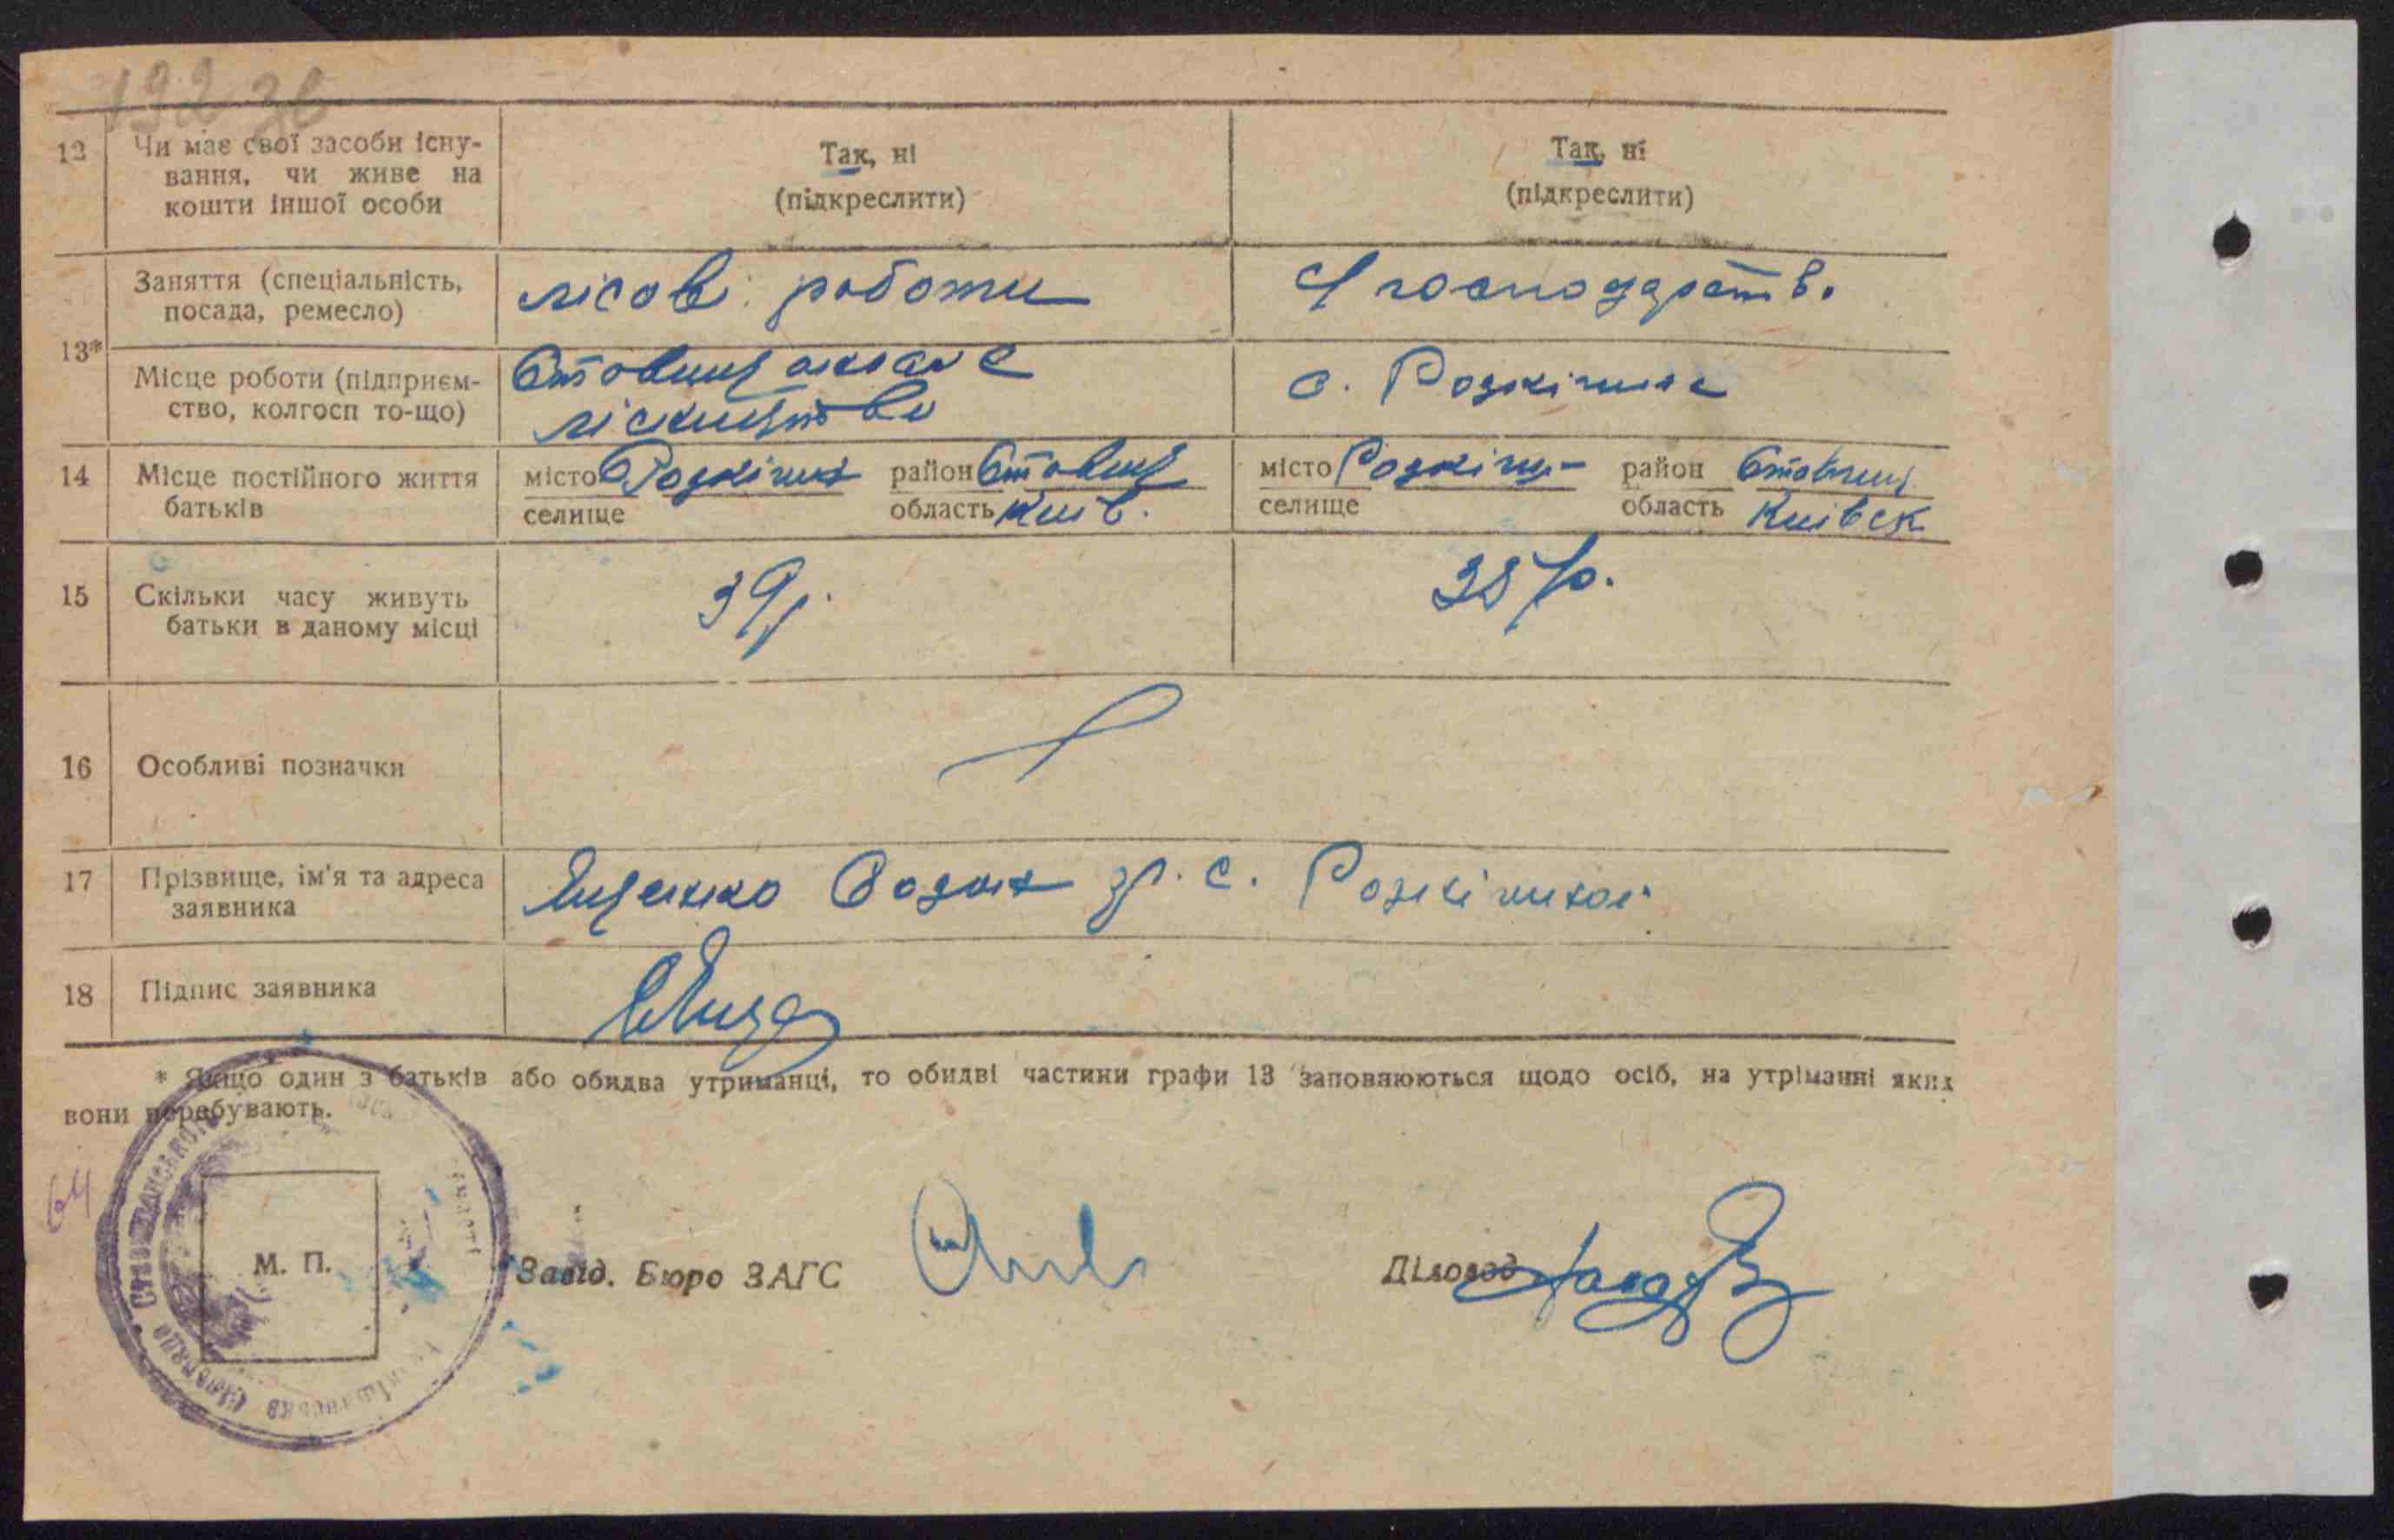 192 зв
12 Чи має свої засоби існу-
вання, чи живе на
кошти іншої особи
Так, ні
(підкреслити)
Так, ні
(підкреслити)
13*
Заняття (спеціальність,
посада, ремесло)
лісові роботи
господарств.
Місце роботи (підприєм-
ство, колгосп то-що)
лісництво
с. Розкішна
14 Місце постійного життя
батьків
місто Розкішна район Ставищ
селище область Київ.
місто Розкіш- район Ставищ
селище область Київск
15 Скільки часу живуть
батьки в даному місці
39 р.
38 р.
16 Особливі позначки
17 Прізвище, ім'я та адреса
заявника
Яценко с. Розкішної
18 Підпис заявника
* Якщо один з батьків або обидва утриманці, то обидві частини графи 13 заповнюються щодо осіб, на утріманні яких
вони перебувають.
64
М. П.
Завід. Бюро ЗАГС
Діловод